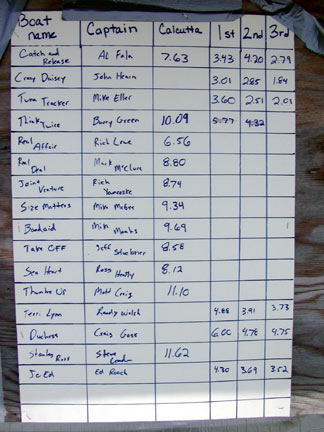 Boat name Captain Calcutta 1st 2nd 3rd
Catch and Release AL Fala 7.63 3.43 4.20 2.79
Crazy Daisey John Hearn 3.01 2.85 1.84
Tuna Tracker Mike Eller 3.60 2.51 2.01
Think Twice Barry Green 10.09 5.77 4.32
Real Affair Rich Lowe 6.56
Reel Deal Mark McClure 8.80
Joint Venture Rich 8.74
Size Matters Mike McGee 9.34
Bandaid Mike 9.69
Take OFF Jeff 8.58
Sea Hawk Ross 8.12
Thumbs Up Matt Craig 11.10
Terri Lynn Randy Walsh 4.88 3.91 3.73
Duchess Craig Gass 6.00 4.76 4.75
Stanley Ross Steve 11.62
Jo Ed Ed Roach 4.30 3.69 3.52